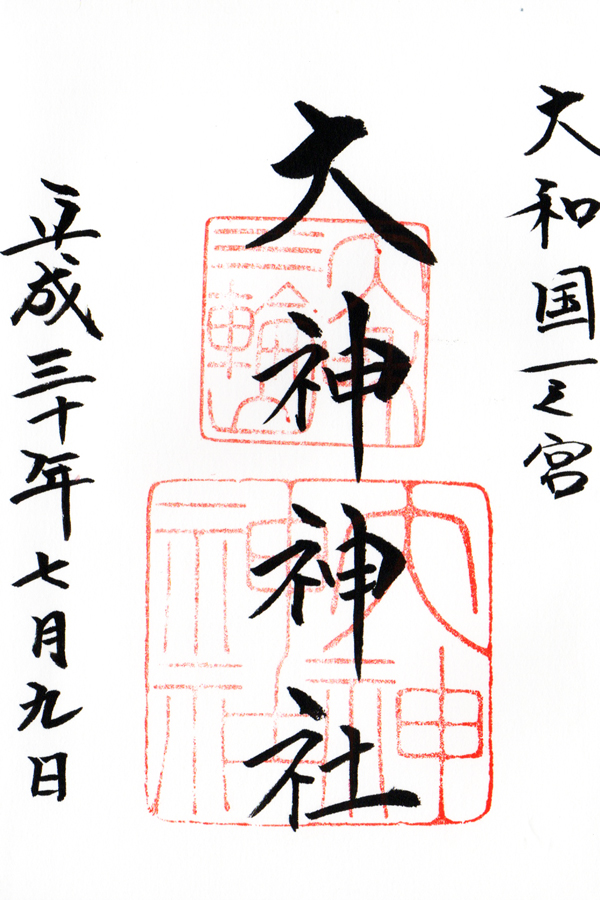 大和国一之宮
大神神社
平成三十年七月九日
大神
神社